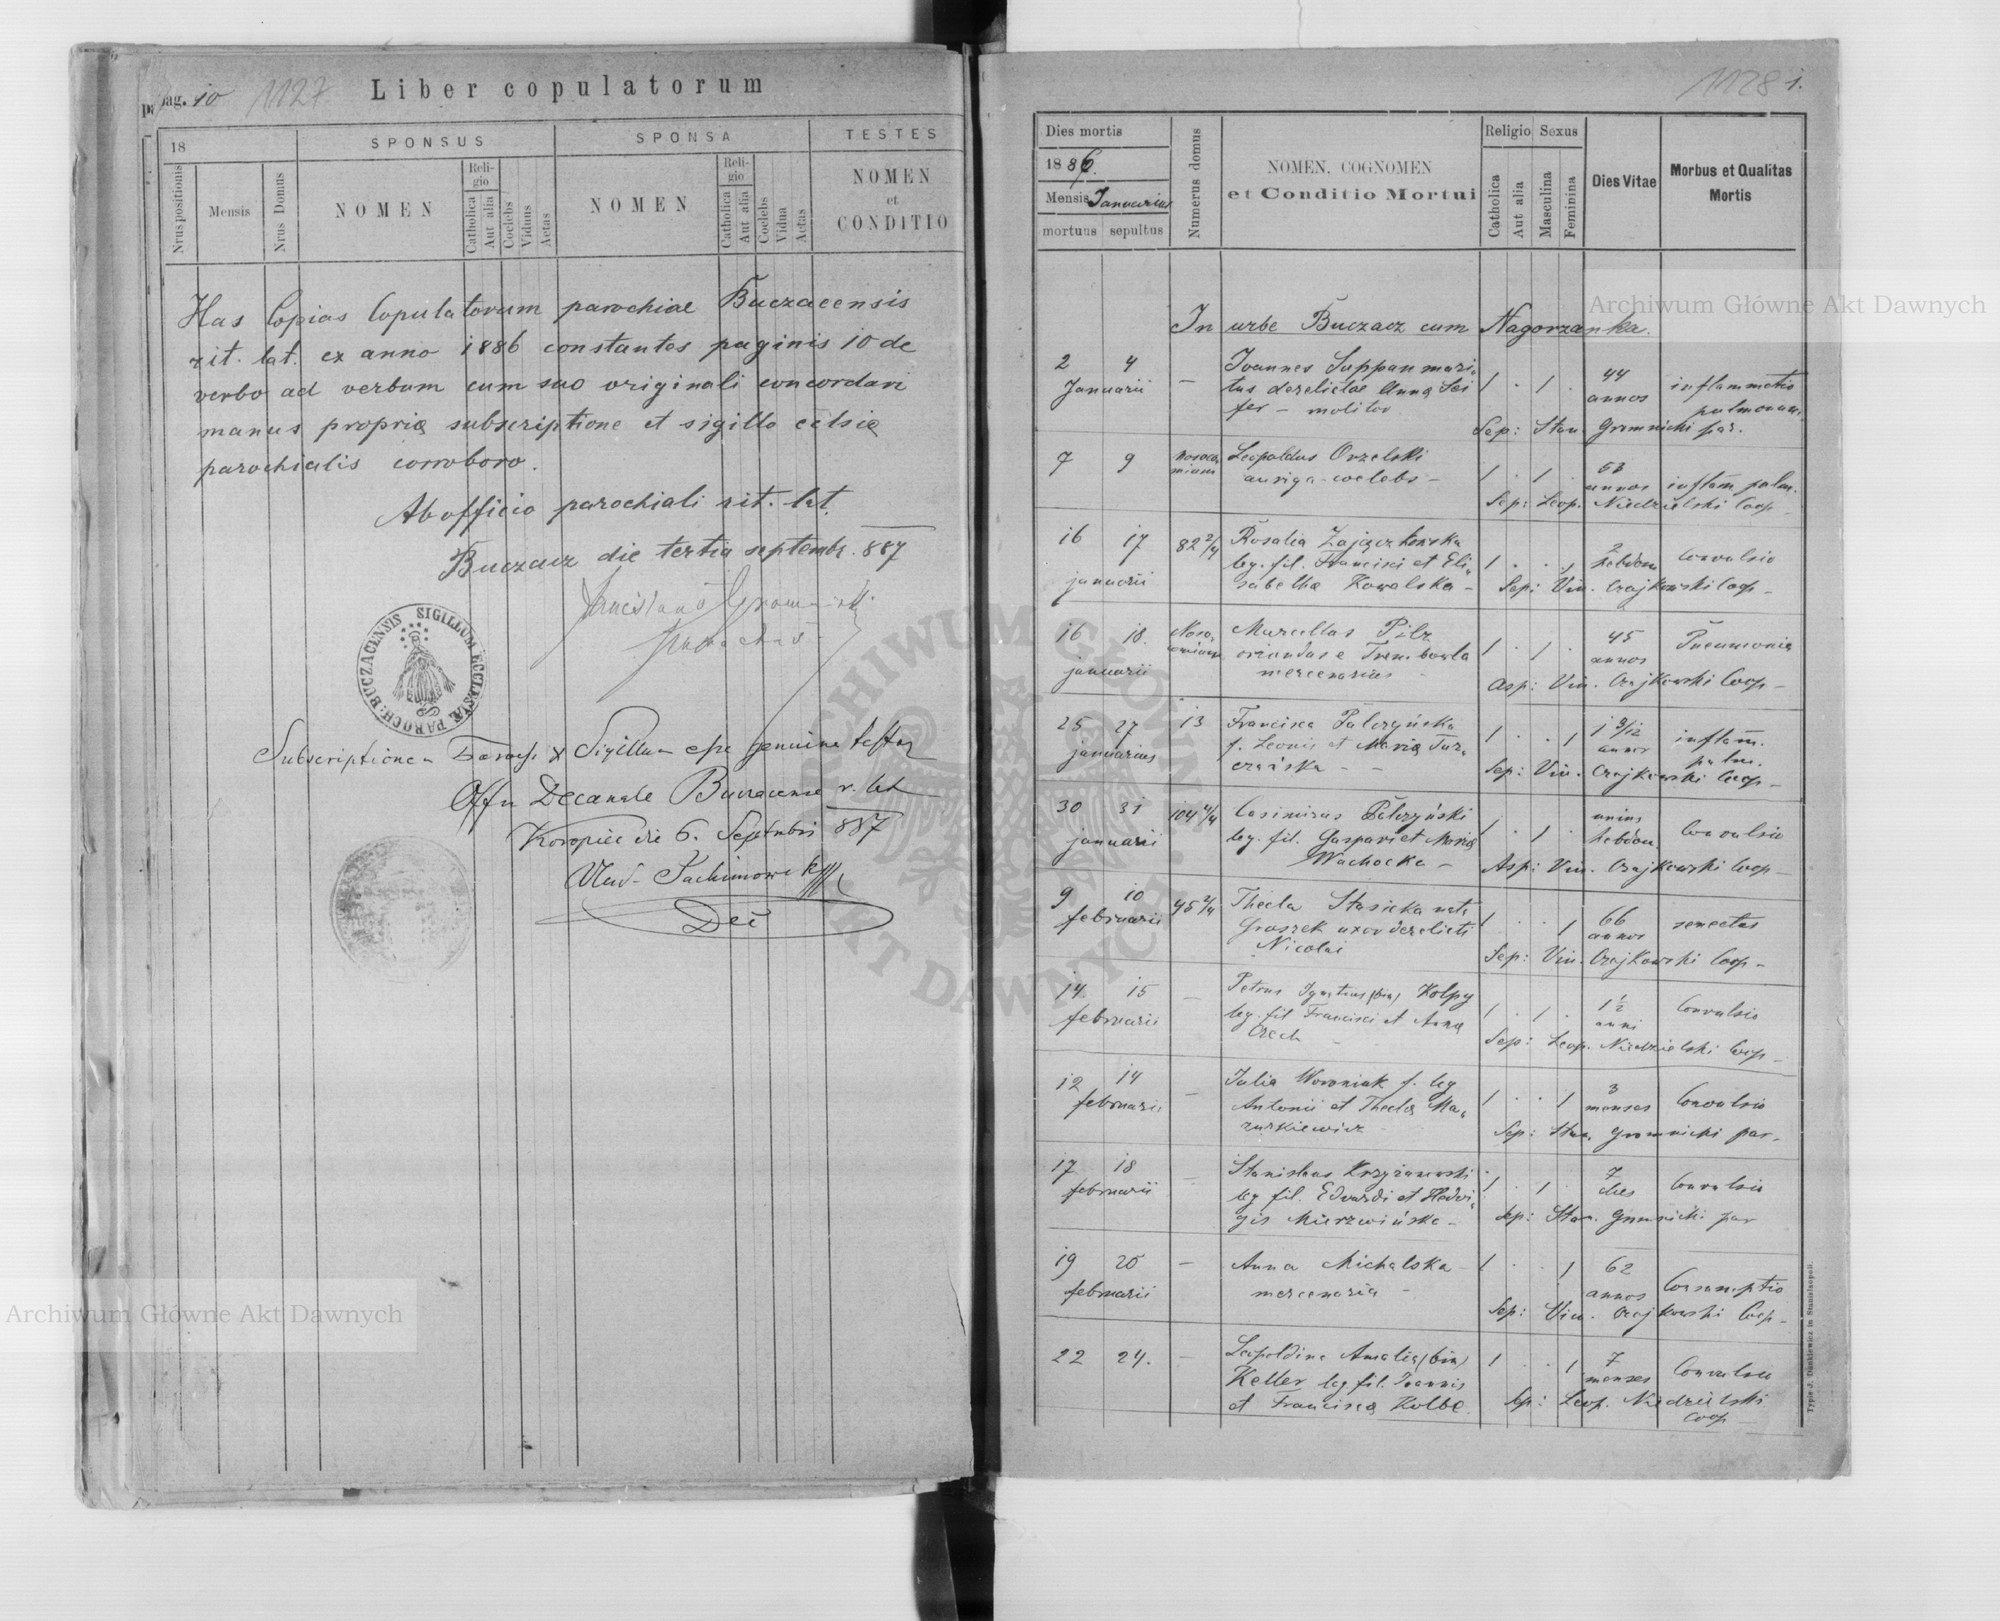 pag. 10
1127
Liber copulatorum
18
SPONSUS
SPONSA
TESTES
Nrus positionis
Mensis
Nrus Domus
NOMEN
Religio
Catholica
Aut alia
Coelebs
Viduus
Aetas
NOMEN
Religio
Catholica
Aut alia
Coelebs
Vidua
Aetas
NOMEN
et
CONDITIO
Has Copias Copulatorum parochiae Buczacensis
rit. lat. ex anno 1886 constantes paginis 10 de
verbo ad verbum cum suo originali concordari
manus propria subscriptione et sigillo
parochialis corroboro.
Ab officio parochiali rit. lat.
Buczacz die tertia septembr. 887
SIGILLUM ECCLESIÆ PAROCH: BUCZACENSIS
Subscriptionem Paroch et Sigillum esse genuina testor
Offm Decanale Buczacense r. lat
Koropiec die 6. Septembris 887
Dec
1128
1.
Dies mortis
1886.
Mensis Januarius
mortuus sepultus
Numerus domus
NOMEN, COGNOMEN
et Conditio Mortui
Religio
Catholica
Aut alia
Sexus
Masculina
Feminina
Dies Vitae
Morbus et Qualitas
Mortis
In urbe Buczacz cum Nagorzanka.
2 4 Januarii — Joannes Suppan mari-
tus derelictae Anna Sei
fer - molitor 1 . 1 . 44 annos inflammatio
pulmonum
Sep: Stan. Gromnicki par.
7 9 nosoco-
mium Leopoldus Orzelski
auriga - coelebs - 1 . 1 . 53 annos inflam pulm.
Sep: Leop. Niedzielski Coop
16 17 januarii 82 2/4 Rosalia Zajączkowska
leg. fil. Francisci et Eli-
sabetha Kowalska - 1 . . 1 2 hebdom Convulsio
Sep: Vin. Czajkowski Coop -
16 18. januarii Noso-
comium Marcellus Pilz
oriundus e Trembowla
mercenarius 1 . 1 . 45 annos Pneumonia
Asp: Vin. Czajkowski Coop -
25 27 januarius 13 Francisca Palczyńska
f. Leonis et Maria Tur-
czańska - - 1 . . 1 1 9/12 annos inflam.
pulm.
Sep: Vin. Czajkowski Coop -
30 31 januarii 104 4/4 Casimirus Palczyński
leg. fil. Gaspari et Maria
Wachocka - 1 . 1 . unius
hebdom Convulsio
Asp: Vin. Czajkowski Coop -
9 10 februarii 45 2/4 Thecla Stasicka nata
Graszek uxor derelicti
Nicolai 1 . . 1 66 annos senectus
Sep: Vin. Czajkowski Coop -
14. 15 februarii — Petrus Ignatius (bin) Kolpy
leg. fil Francisci et Anna
Czech 1 . 1 . 1 1/2 anni Convulsio
Sep: Leop. Niedzielski Coop -
12 14 februarii — Julia Woroniak f. leg
Antonii et Thecla Ma-
zurkiewicz 1 . . 1 3 menses Convulsio
Sep: Stan. Gromnicki par.
17 18 februarii — Stanislaus Krzyżanowski
leg fil. Edvardi et Hedvi-
gis Mierzwińska - 1 . 1 7 dies Convulsio
Sep: Stan. Gromnicki par
19 20 februarii — Anna Michalska -
mercenaria - 1 . . 1 62 annos Consumptio
Sep: Vin. Czajkowski Coop -
22 24. — Leopoldina Amalia (bin)
Keller leg fil. Joannis
et Francisca Kolbe. 1 . . 1 7 menses Convulsio
Sep: Leop. Niedzielski
Coop
Typis J. Dankiewicz in Stanislaopoli.
Archiwum Główne Akt Dawnych
Archiwum Główne Akt Dawnych
ARCHIWUM GŁÓWNE AKT DAWNYCH